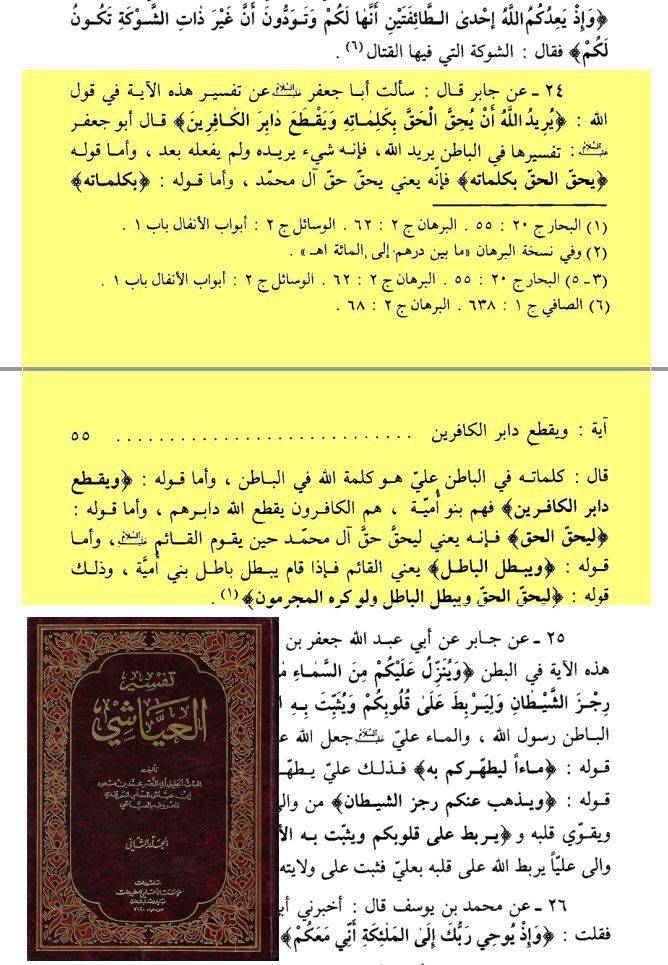 ﴿وَإِذْ يَعِدُكُمُ اللَّهُ إِحْدىٰ الـطَّائِفَتَيْنِ أَنَّهٰا لَكُمْ وَتَوَدُّونَ أَنَّ غَيْرَ ذٰاتِ الشَّوْكَةِ تَكُونُ
لَكُمْ﴾ فقال : الشوكة التي فيها القتال (٦) .
٢٤ ـ عن جابر قال : سألت أبا جعفر عليه السلام عن تفسير هذه الآية في قول
الله : ﴿يُرِيدُ اللَّهُ أَنْ يُحِقَّ الْحَقَّ بِكَلِمٰاتِهِ وَيَقْطَعَ دٰابِرَ الكٰـافِرِينَ﴾ قال أبو جعفر
عليه السلام : تفسيرها في الباطن يريد الله ، فإنه شيء يريده ولم يفعله بعد ، وأما قوله
﴿يحقّ الحقّ بكلماته﴾ فإنّه يعني يحقّ حقّ آل محمّد ، وأما قوله : ﴿بكلماته﴾
(١) البحار ج ٢٠ : ٥٥ . البرهان ج ٢ : ٦٢ . الوسائل ج ٢ : أبواب الأنفال باب ١ .
(٢) وفي نسخة البرهان «ما بين درهم إلى المائة اهـ» .
(٣ ـ ٥) البحار ج ٢٠ : ٥٥ . البرهان ج ٢ : ٦٢ . الوسائل ج ٢ : أبواب الأنفال باب ١ .
(٦) الصافي ج ١ : ٦٣٨ . البرهان ج ٢ : ٦٨ .
آية : ويقطع دابر الكافرين ............................ ٥٥
قال : كلماته في الباطن عليّ هو كلمة الله في الباطن ، وأما قوله : ﴿ويقطع
دابر الكافرين﴾ فهم بنو أُميّة ، هم الكافرون يقطع الله دابرهم ، وأما قوله :
﴿ليحقّ الحق﴾ فإنه يعني ليحقَّ حقَّ آل محمّد حين يقوم القائم عليه السلام ، وأما
قوله : ﴿ويبطل الباطل﴾ يعني القائم فإذا قام يبطل باطل بني أميَّة ، وذلك
قوله : ﴿ليحقّ الحقّ ويبطل الباطل ولو كره المجرمون﴾ (١) .
٢٥ ـ عن جابر عن أبي عبد الله جعفر بن
هذه الآية في البطن ﴿وَيُنَزِّلُ عَلَيْكُمْ مِنَ السَّمٰاءِ
رِجْزَ الشَّيْطٰانِ وَلِيَرْبِطَ عَلَىٰ قُلُوبِكُمْ وَيُثَبِّتَ بِهِ
الباطن رسول الله ، والماء عليّ عليه السلام جعل الله
قوله : ﴿ماءاً ليطهّركم به﴾ فذلك عليّ يطهّر
قوله : ﴿ويذهب عنكم رجز الشيطان﴾ من والى
ويقوّي قلبه و﴿يربط على قلوبكم ويثبّت به
والى عليّاً يربط الله على قلبه بعليّ فثبت على ولايته
٢٦ ـ عن محمد بن يوسف قال : أخبرني
فقلت : ﴿وَإِذْ يُوحِي رَبُّكَ إِلَىٰ المَلٰئِكَةِ أَنِّي مَعَكُمْ﴾
تفسير
العيّاشي
تأليف
المعروف بالعياشي
الجزء الثاني
منشورات
مؤسسة الأعلمي للمطبوعات